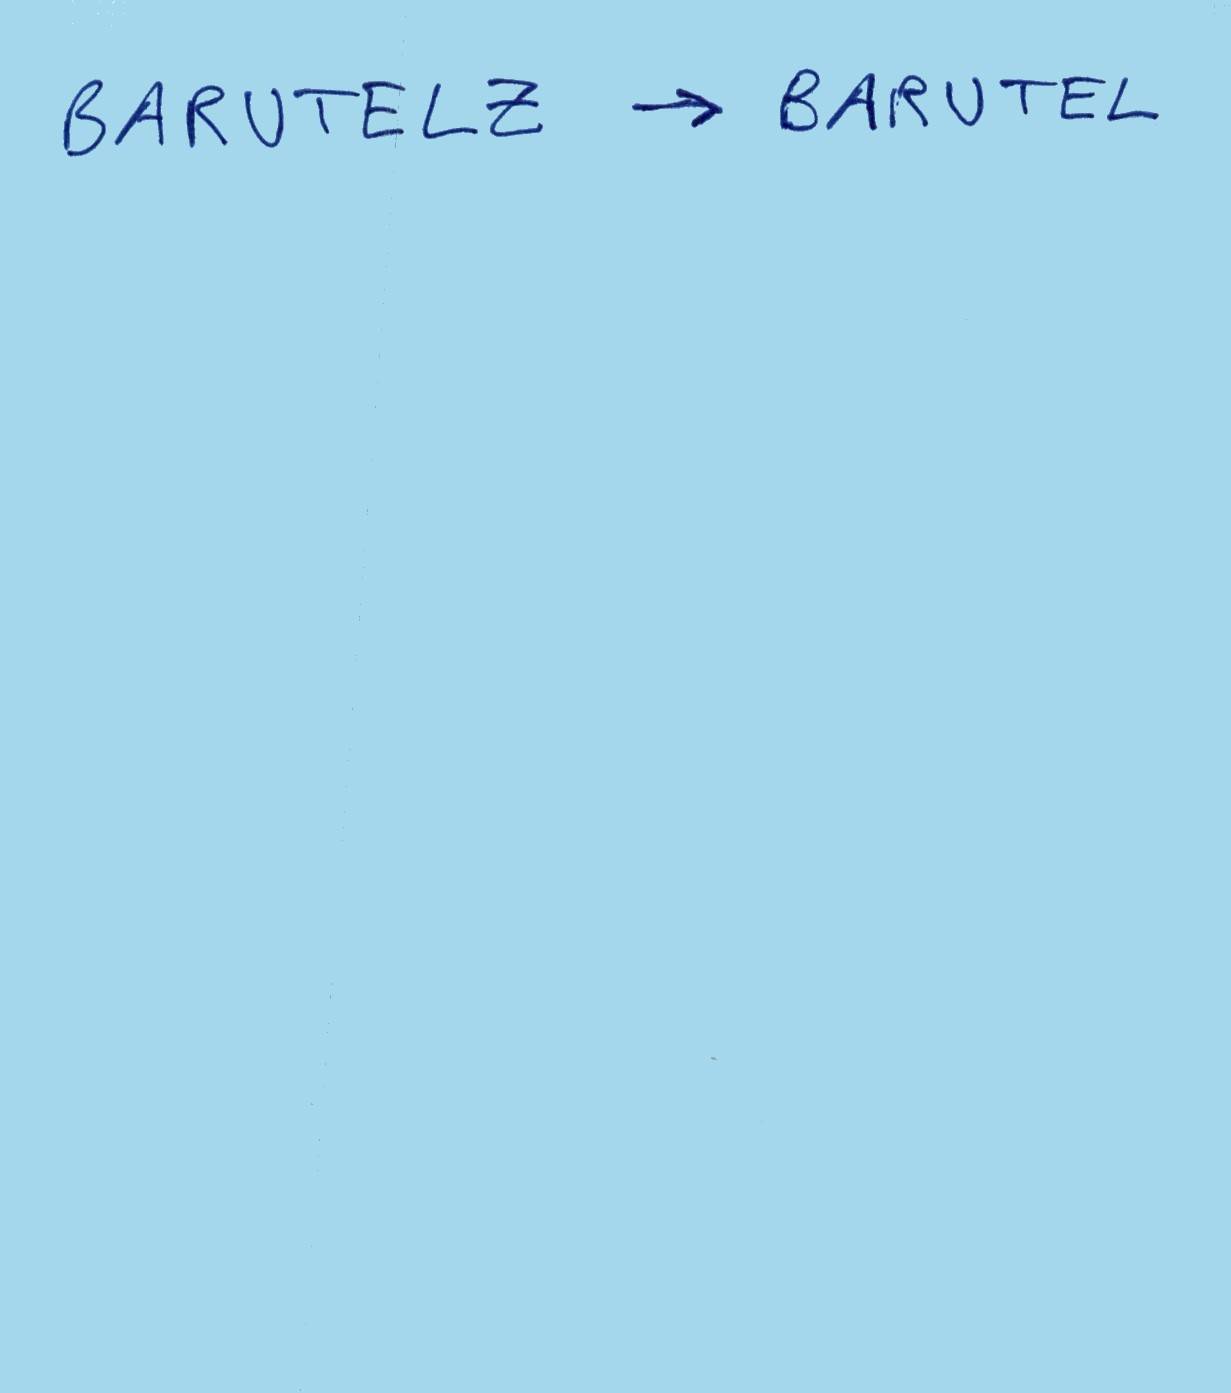 BARUTELZ → BARUTEL